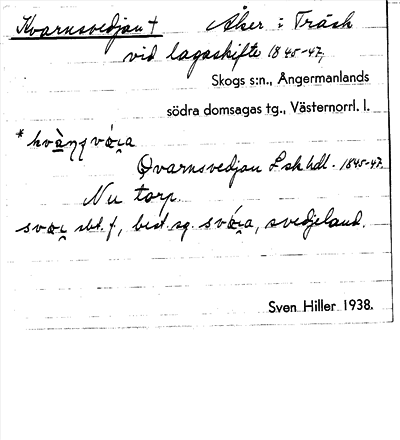 Kvarnsvedjan † Åker i Träsk
vid lagaskifte 1845-47,
Skogs s:n., Ångermanlands
södra domsagas tg., Västernorrl. l.
Qvarnsvedjan Lskhdl. 1845-47.
Nu torp.
sbt. f, best. sg. svedjeland.
Sven Hiller 1938.